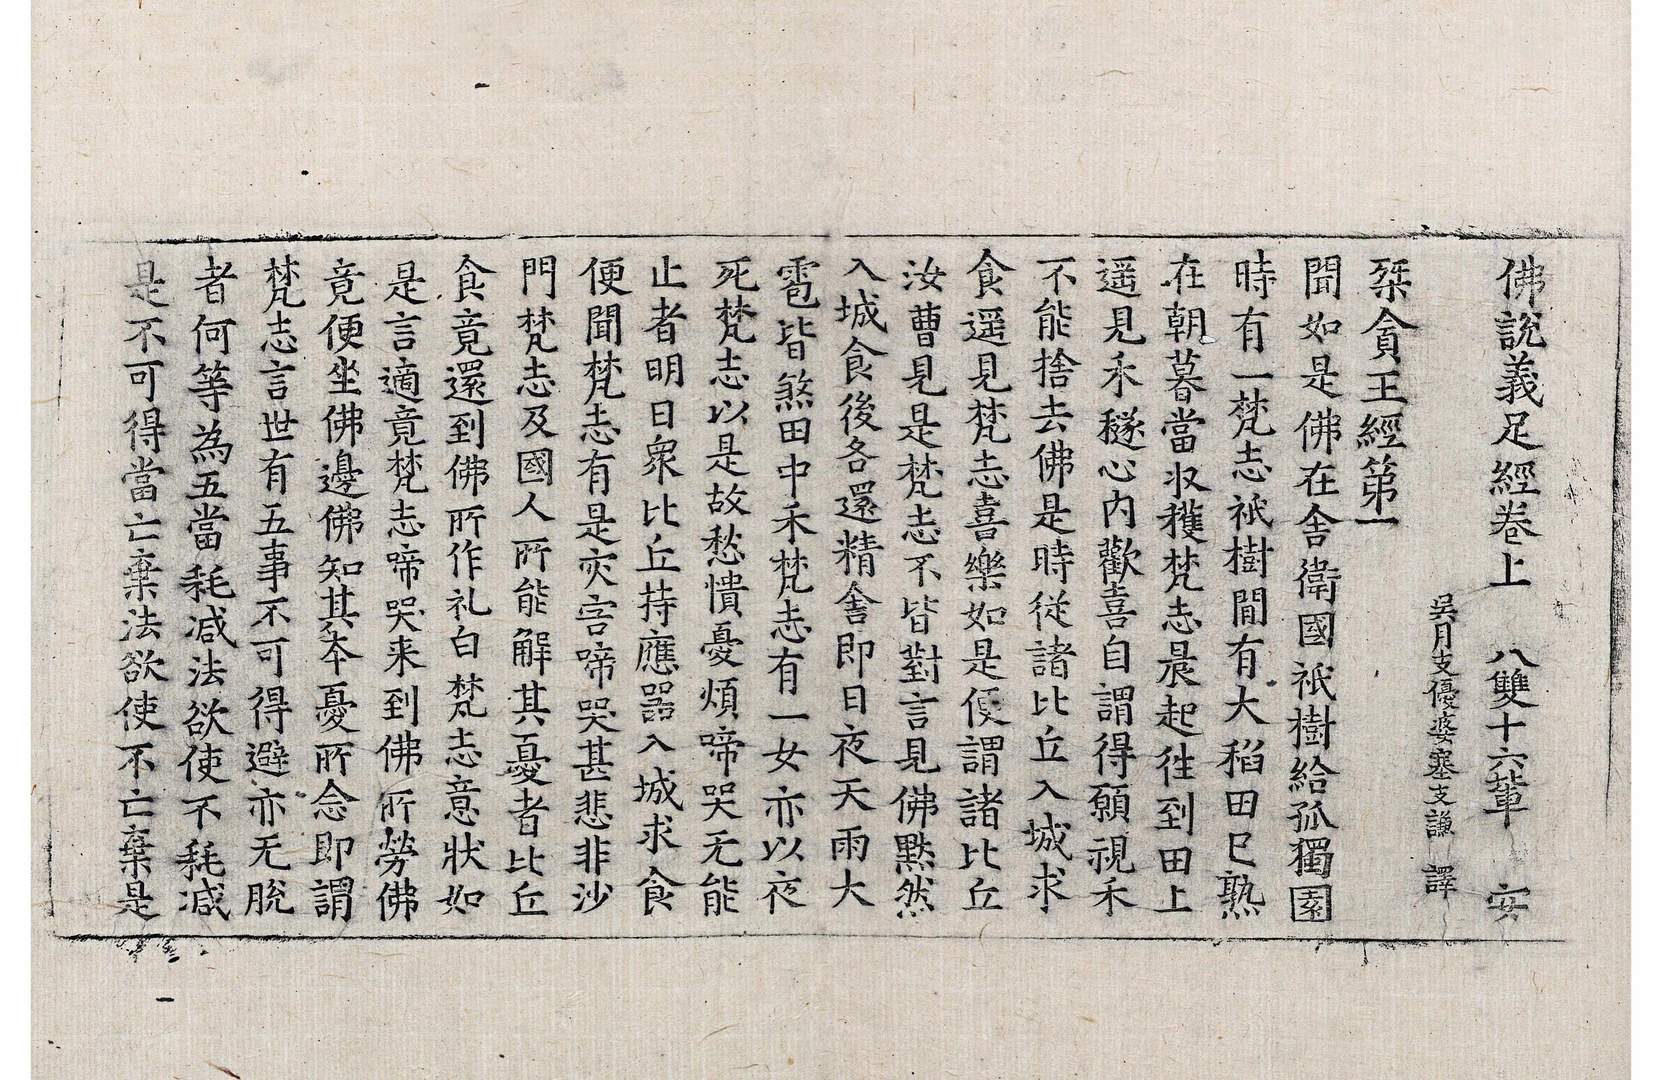 佛說義足經卷上　八雙十六輩　安
吳月支優婆塞支謙　譯
桀貪王經第一
聞如是佛在舍衛國祇樹給孤獨園
時有一梵志祇樹間有大稻田已熟
在朝暮當収穫梵志晨起往到田上
遥見禾穟心内歡喜自謂得願視禾
不能捨去佛是時従諸比丘入城求
食遥見梵志喜樂如是便謂諸比丘
汝曹見是梵志不皆對言見佛黙然
入城食後各還精舍即日夜天雨大
雹皆煞田中禾梵志有一女亦以夜
死梵志以是故愁憒憂煩啼哭无能
止者明日衆比丘持應器入城求食
便聞梵志有是灾害啼哭甚悲非沙
門梵志及國人所能解其憂者比丘
食竟還到佛所作礼白梵志意狀如
是言適竟梵志啼哭来到佛所勞佛
竟便坐佛邊佛知其本憂所念即謂
梵志言世有五事不可得避亦无脫
者何等為五當耗减法欲使不耗减
是不可得當亡棄法欲使不亡棄是